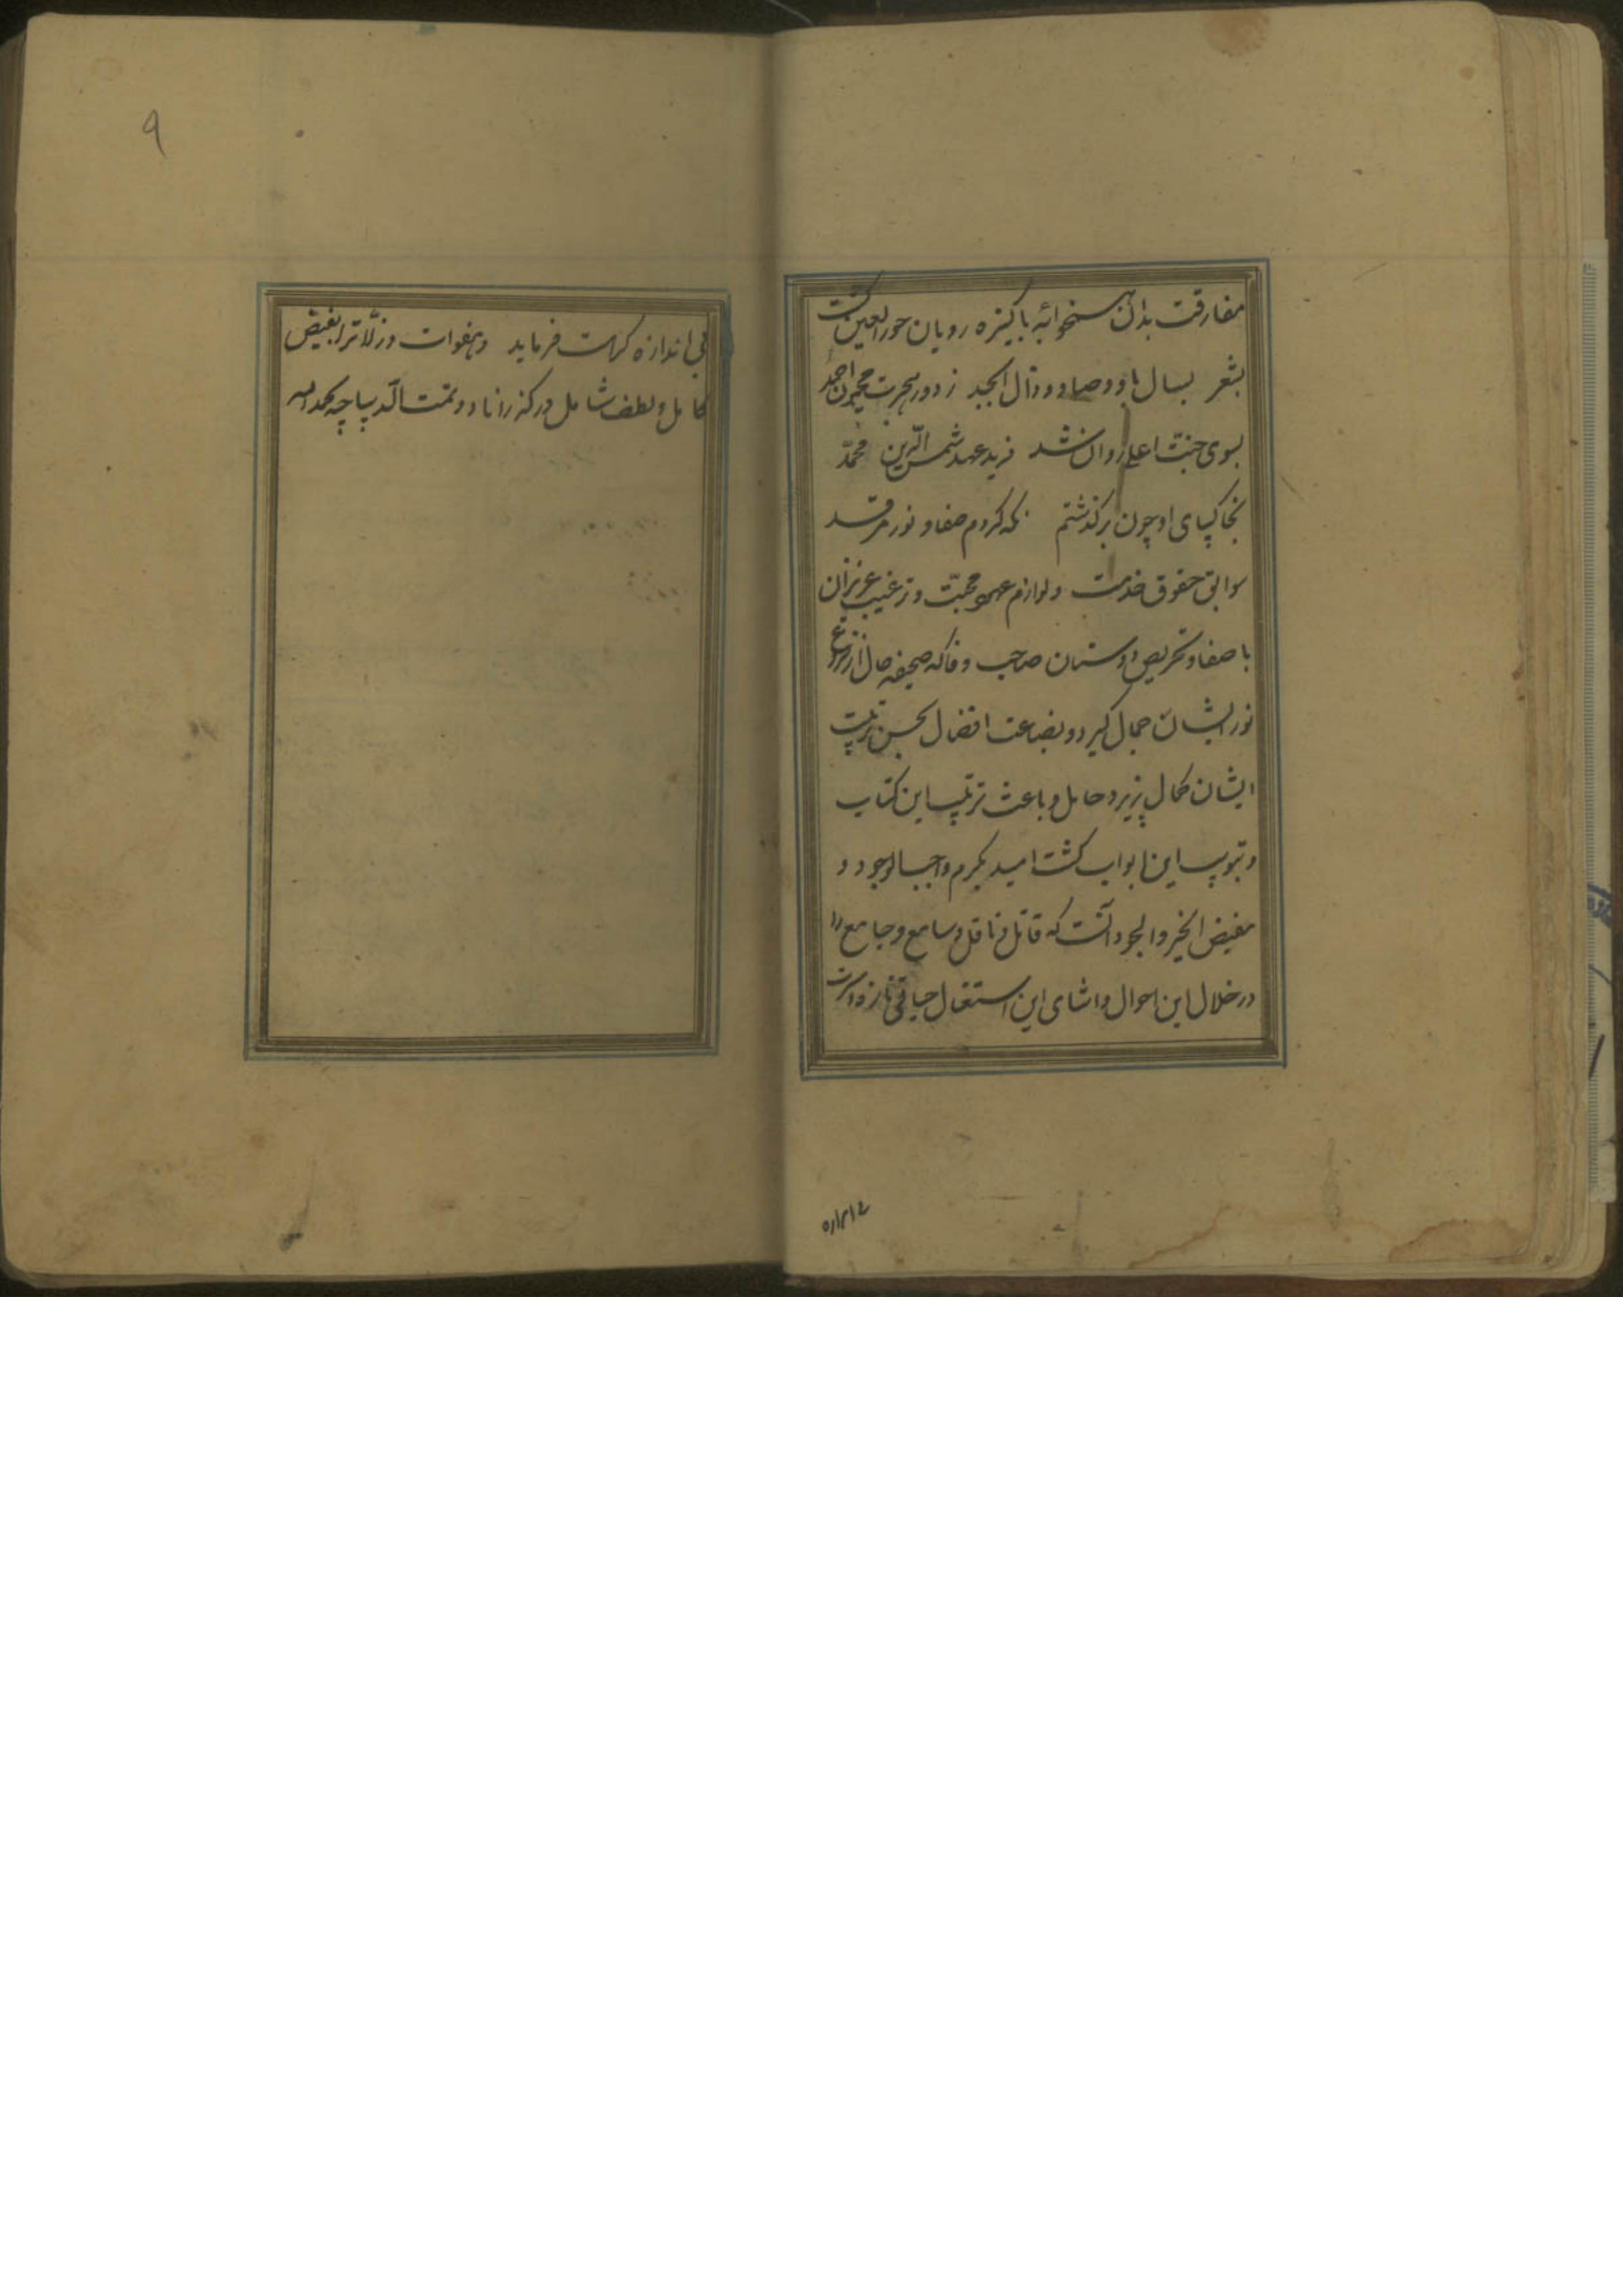 مفارقت بدن همخوابه پاکیزه رویان حورالعین گشت
شعر بسال با و صاد و ذال ابجد ز دور هجرت میمون احمد
بسوی جنت اعلی روان شد فرید عهد شمس الدین محمد
بخاک پای او چون برگذشتم نکه کردم صفا و نور مرقد
سوابق حقوق خدمت و لوازم عهود محبت و ترغیب عزیزان
با صفا و تحریص دوستان صاحب وفا که صحیفه حال از فروغ
نور ایشان جمال گیرد و بضاعت افضال بحسن تربیت
ایشان کمال پذیرد حامل و باعث ترتیب این کتاب
و تبویب این ابواب گشت امید بکرم واجب الوجود و
مفیض الخیر والجود آنست که قائل و ناقل و سامع و جامع را
در خلال این احوال و اثنای این اشتغال حیاتی تازه و مسرت
بی اندازه کرامت فرماید و هفوات و زلات را بفیض
کامل و لطف شامل در گذراناد و تمت الدیباچه بحمد الله
۹